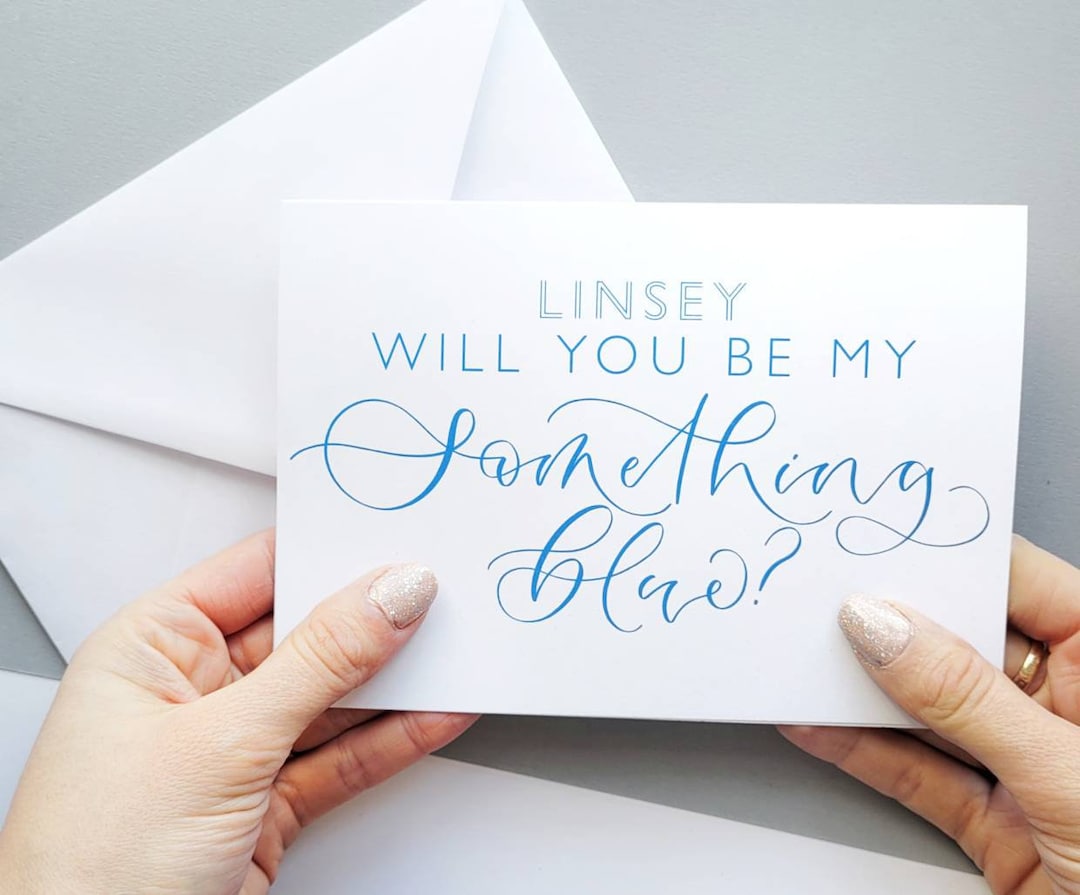 LINSEY
WILL YOU BE MY
Something
blue?